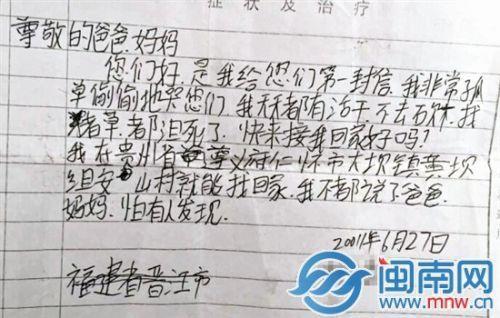 症状及治疗
尊敬的爸爸.妈妈
您们好.是我给您们第一封信.我非常孤
单偷偷地哭您们.我天天都有活干.不去
猪草.都迫死了.快来接我回家好吗?
我在贵州省遵义府仁怀市大坝镇黄坝
组安山村就能找回家.我不都说了爸爸.
妈妈.怕有人发现.
2001年6月27日
福建省晋江市
闽南网
www.mnw.cn